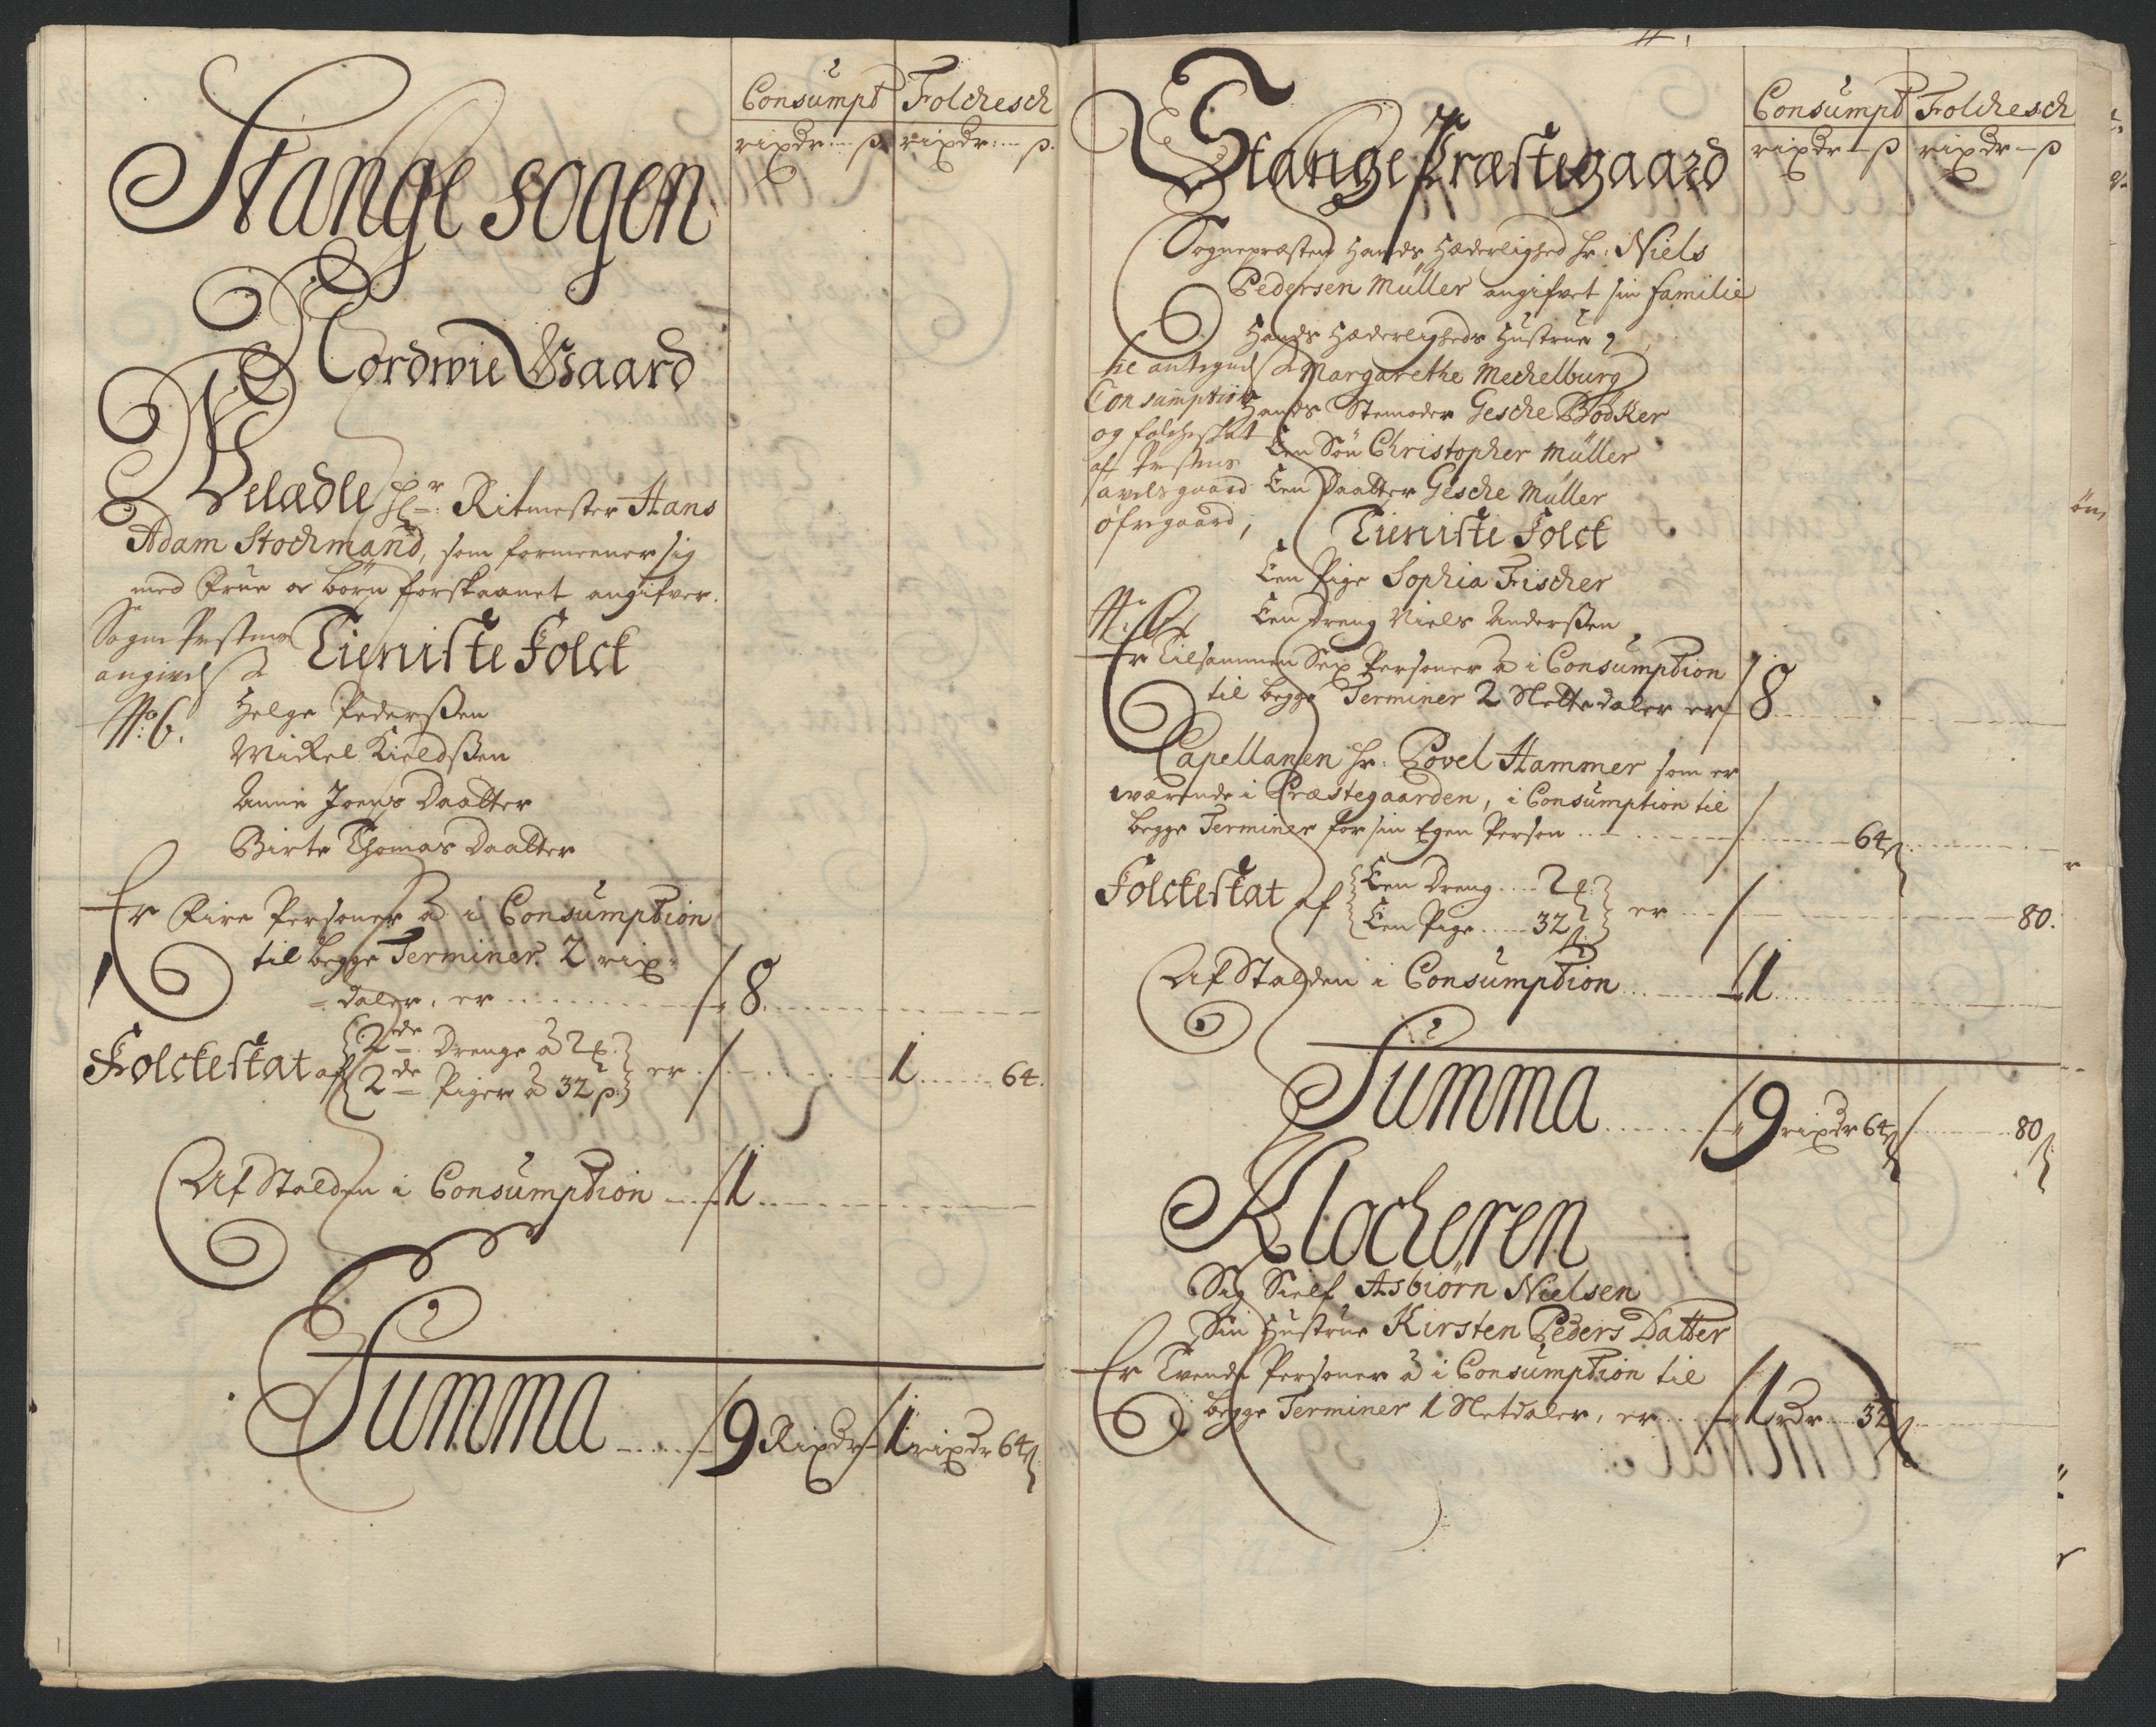 Consumpt Folchesch
rixdr — ß rixdr — ß.
Stange sogen
Nordwie Gaard
Velædle Hr: Ritmester Hans
Adam Stochmand, som formeener sig
med Frue oc børn forskaanet angifver.
Sogne Prestens
angivels
No: 6.
Tieniste Folck
Helge Pederßen
Mickel Kieldßen
Anne Joens Daatter
Birte Thomas Daatter
Er Fire Personer â i Consumption
til begge Terminer 2 rix=
=daler, er 8
Folckeskat af 2de Drenge â 2
2de Piger â 32 ß er 1 64.
Af Stalden i Consumption 1
Summa 9 Rixdr 1 rixdr 64 ß
Consumpt Folchesch
rixdr — ß rixdr — ß
Stange Præstegaard
Sognepræsten Hands Hæderlighed hr: Niels
Pedersen Müller angifvet sin familie
Hands Hæderligheds Hustrue
Margarethe Mechelburg
Hands Stemoder Gesche Bödker
Een Sön Christopher Müller
Een Daatter Gesche Müller
Consumption
og folcheskat
af Prestens
avels gaard
øfregaard,
No: 6
Tieniste Folck
Een Pige Sophia Fischer
Een Dreng Niels Anderßen
Er Tilsammen Sex Personer â i Consumption
til begge Terminer 2 Slettedaler er 8
Capellanen hr: Povel Hammer som er
værende i Præstegaarden, i Consumption til
begge Terminer for sin Egen Person 64 ß
Folckeskat af Een Dreng 2
Een Pige 32 ß er 80.
Af Stalden i Consumption 1
Summa 9 rixdr 64 ß 80 ß
Klocheren
Sig Sielf Asbiörn Nielsen
Sin Hustrue Kirsten Peders Datter
Er Tvende Personer â i Consumption til
begge Terminer 1 Sletdaler, er 1 rdr 32 ß